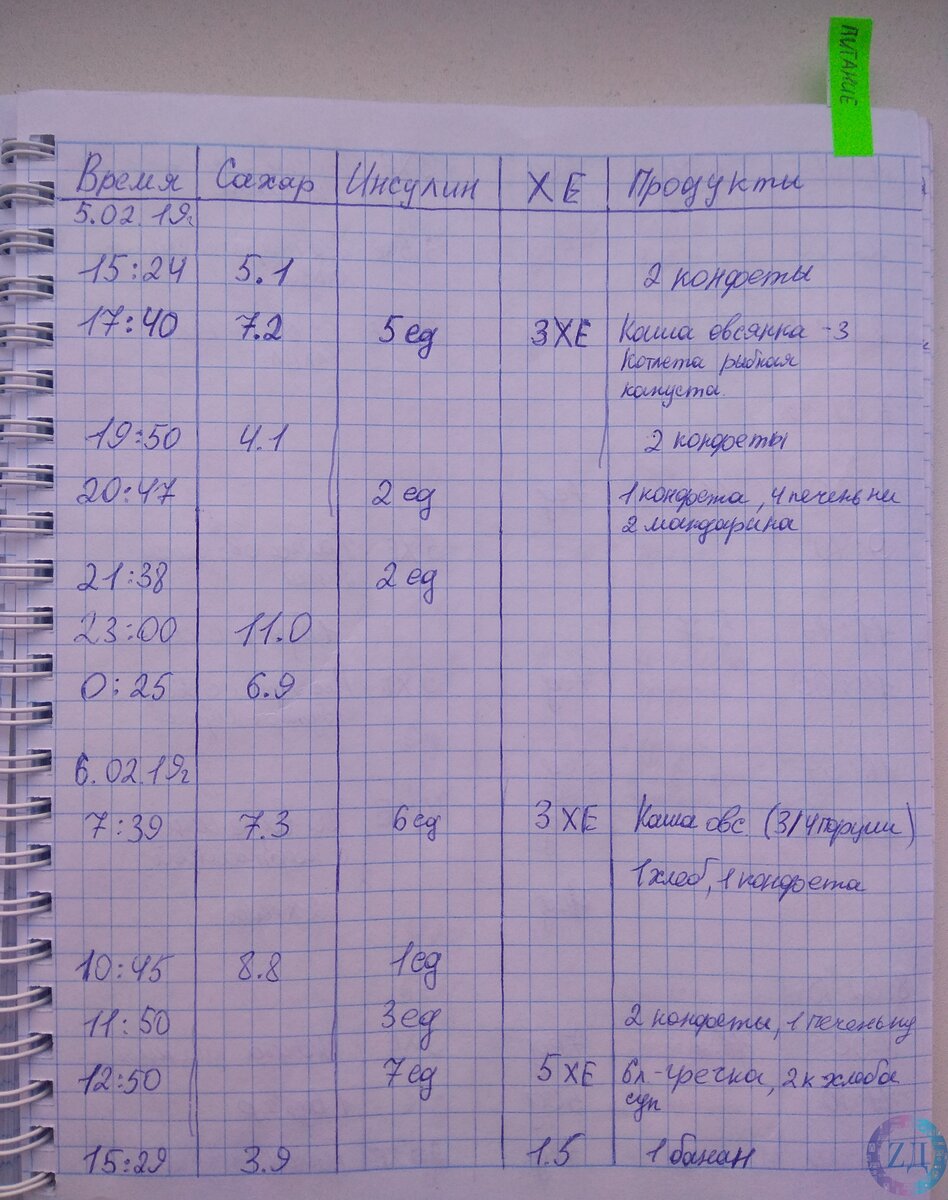 ПИТАНИЕ
Время Сахар Инсулин ХЕ Продукты
5.02.19г
15:24 5.1 2 конфеты
17:40 7.2 5 ед 3 ХЕ Каша овсянка -3
Котлета рыбная
капуста.
19:50 4.1 2 конфеты
20:47 2 ед 1 конфета, 4 печеньки
2 мандарина
21:38 2 ед
23:00 11.0
0:25 6.9
6.02.19г
7:39 7.3 6 ед 3 ХЕ Каша овс. (3/4 порции)
1 хлеб, 1 конфета
10:45 8.8 1 ед
11:50 3 ед 2 конфеты, 1 печеньку
12:50 7 ед 5 ХЕ 6л-гречка, 2к хлеба
суп
15:29 3.9 1.5 1 банан
ZД